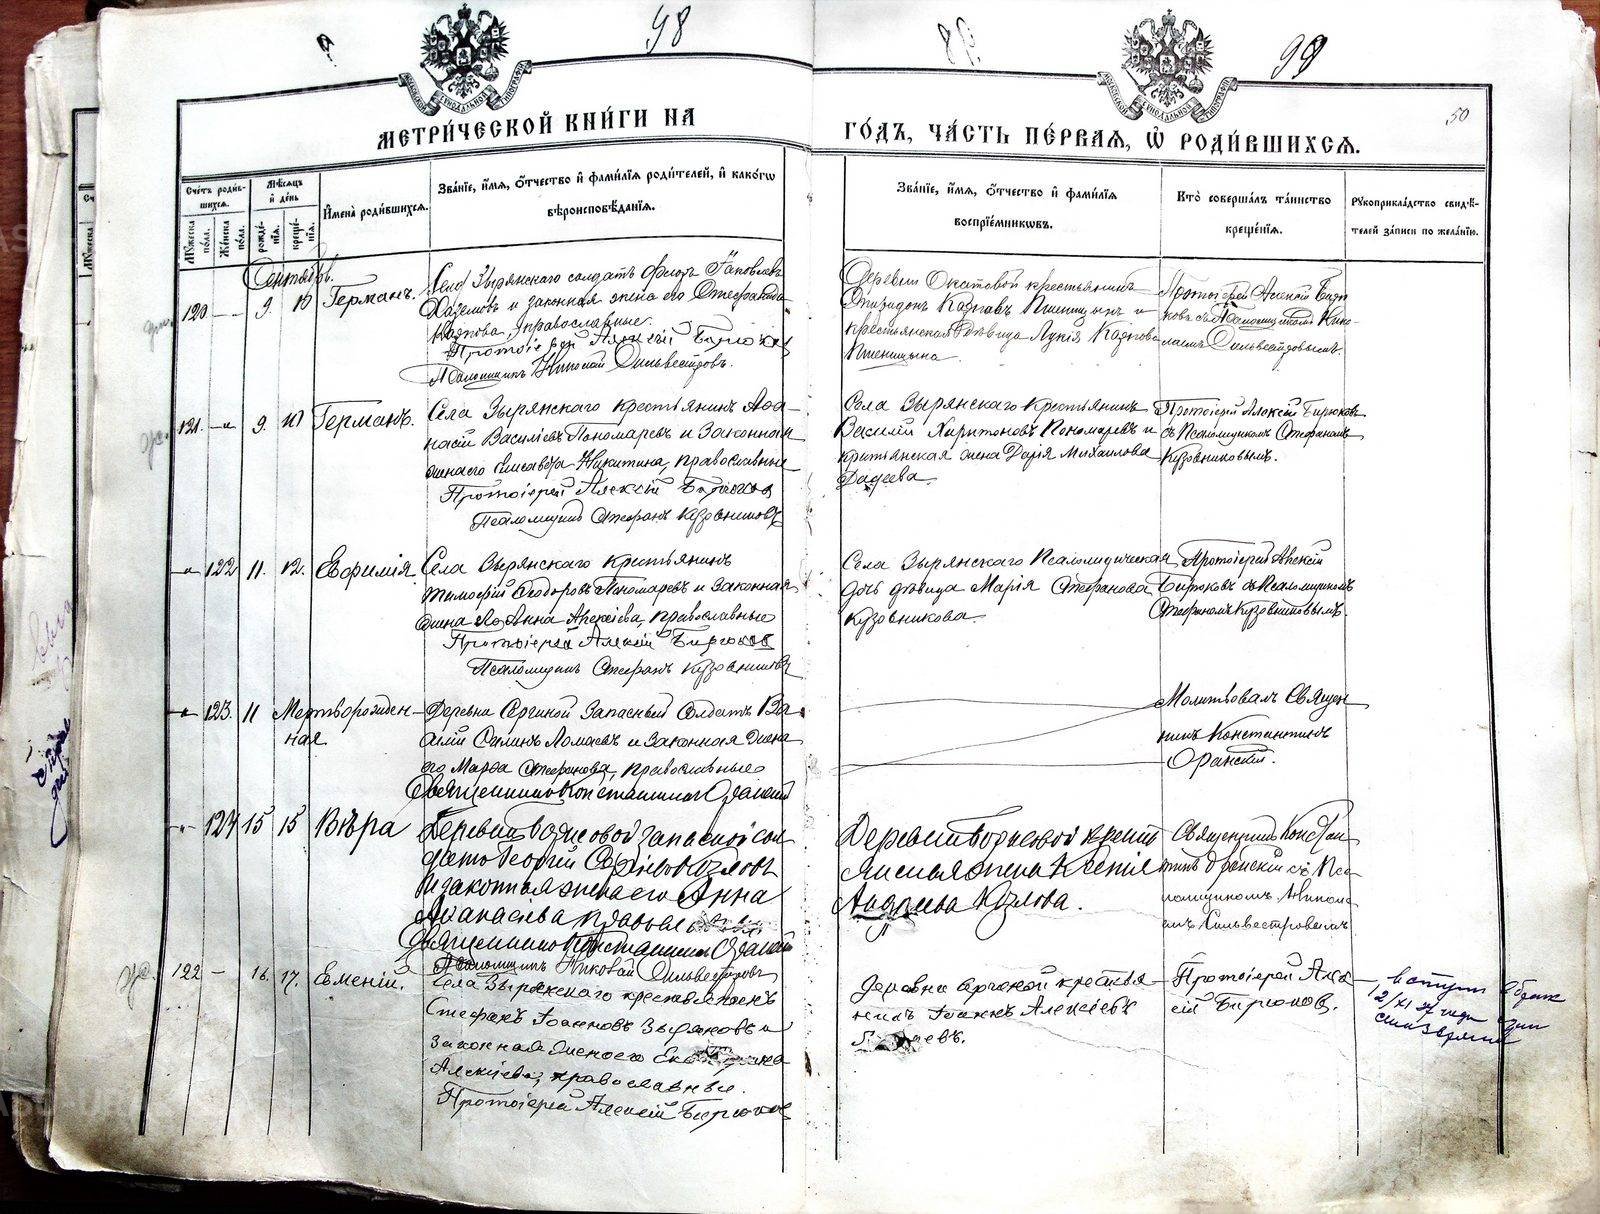 98
99
50
МОСКОВСКОЙ СѴНОДАЛЬНОЙ ТИПОГРАФІИ
МОСКОВСКОЙ СѴНОДАЛЬНОЙ ТИПОГРАФІИ
МЕТРИ́ЧЕСКОЙ КНИ́ГИ НА
ГО́ДЪ, ЧА́СТЬ ПЕ́РВАЯ, Ѡ҆ РОДИ́ВШИХСЯ.
Сче́тъ роди́вшихся.
Мꙋ́жеска по́ла.
Же́нска по́ла.
Мѣ́сяцъ и҆ де́нь
рожде́нїя.
креще́нїя.
И҆мена̀ роди́вшихся.
Зва́нїе, и҆́мя, ѻ҆́тчество и҆ фами́лїя роди́телей, и҆ како́гѡ
вѣроисповѣ́данїя.
Зва́нїе, и҆́мя, ѻ҆́тчество и҆ фами́лїя
воспрїе́мникѡвъ.
Кто̀ соверша́лъ та́инство
креще́нїя.
Рꙋкоприкла́дство свидѣ́-
телей за́писи по жела́нїю.
Сентябрь.
120 — 9. 10 Германъ.
Села Зырянскаго солдатъ Флоръ Іаковлевъ
и законная жена его Стефанида
Карпова, православные.
Протоіерей Алексій Бирюковъ
Псаломщикъ Николай Сильвестровъ.
Деревни Окатовой крестьянинъ
Спиридонъ Карповъ Пшеницынъ и
крестьянская дѣвица Лукія Карпова
Пшеницына.
Протоіерей Алексій Бирю
ковъ съ псаломщикомъ Нико
лаемъ Сильвестровымъ.
121. 9. 10 Германъ.
Села Зырянскаго крестьянинъ Аѳа-
насій Васильевъ Пономаревъ и законная
жена его Елисавета Никитина, православные
Протоіерей Алексій Бирюков
Псаломщикъ Стефанъ Кузовниковъ
Села Зырянскаго Крестьянинъ
Василій Харитоновъ Пономаревъ и
крестьянская жена Дарія Михаилова
Фадеева.
Протоіерей Алексій Бирюков
съ Псаломщикомъ Стефаномъ
Кузовниковымъ.
122 11. 12. Евфимія.
Села Зырянскаго Крестьянинъ
Тимофій Ѳеодоровъ Пономаревъ и Законная
жена его Анна Алексіева, православные
Протоіерей Алексій Бирюков
Псаломщикъ Стефанъ Кузовников
Села Зырянскаго Псаломщическая
дочь дѣвица Марія Стефанова
Кузовникова.
Протоіерей Алексій
Бирюковъ съ Псаломщикомъ
Стефаномъ Кузовниковымъ.
123. 11 Мертворожден-
ная
Деревни Сергиной Запасный Солдатъ Ва
силій Силинъ Ломаевъ и Законная Жена
его Марѳа Стефанова, православные
Священникъ Константинъ Оранскій
Молитвовалъ Священ
никъ Константинъ
Оранскій.
124 15 15 Вѣра
Деревни Борисовой запасной сол
датъ Георгій Сергіевъ Козловъ
и законная жена его Анна
Аѳанасіева православные
Священникъ Константинъ Оранскій
Псаломщикъ Николай Сильвестровъ
Деревни Борисовой крестья
янская жена Ксенія
Андреева Козлова.
Священникъ Констан
тинъ Оранскій съ Пса
ломщикомъ Никола
емъ Сильвестровымъ
122 — 16. 17. Евменій.
Села Зырянскаго крестьянинъ
Стефанъ Іоанновъ Зыряновъ и
законная жена его
Алексіева, православные.
Протоіерей Алексій Бирюков
Деревни Сергиной крестья
нинъ Іоаннъ Алексіевъ
Протоіерей Алек
сій Бирюков.
вступил в брак
12/XI 27 года